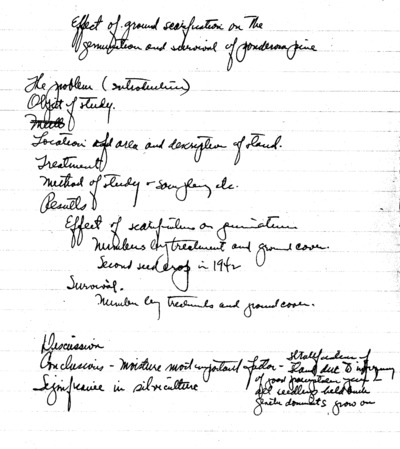 Effect of ground scarification on the
germination and survival of ponderosa pine
The problem (introduction)
Object of study.
Location of area and description of stand.
Treatment
Method of study - sampling etc.
Results
Effect of scarification on germination
Numbers by treatment and ground cover.
Second seed crop in 1942
Survival.
Number by treatments and ground cover.
Discussion
Conclusions - moisture most important factor -
Significance in silviculture
Stratification of
stand due to
of good
seedling held back
grow on